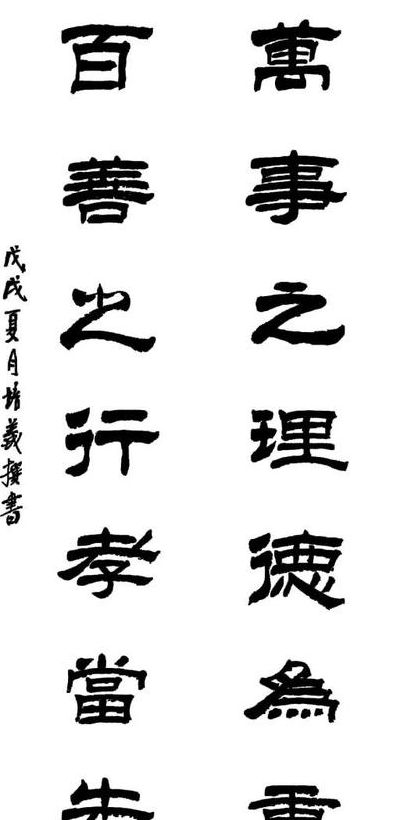 萬事之理德為重
百善之行孝當先
戊戌夏月培義撰書